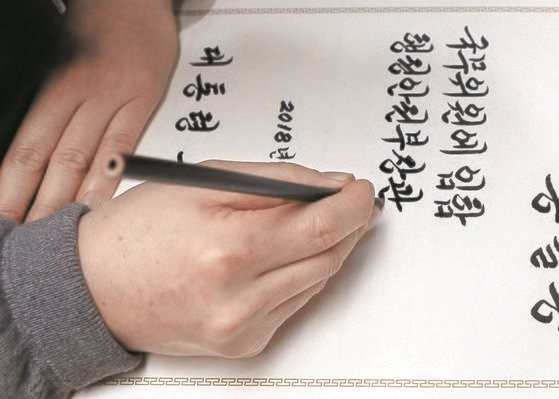 국무위원에 임함
행정안전부장관
2018년
대통령